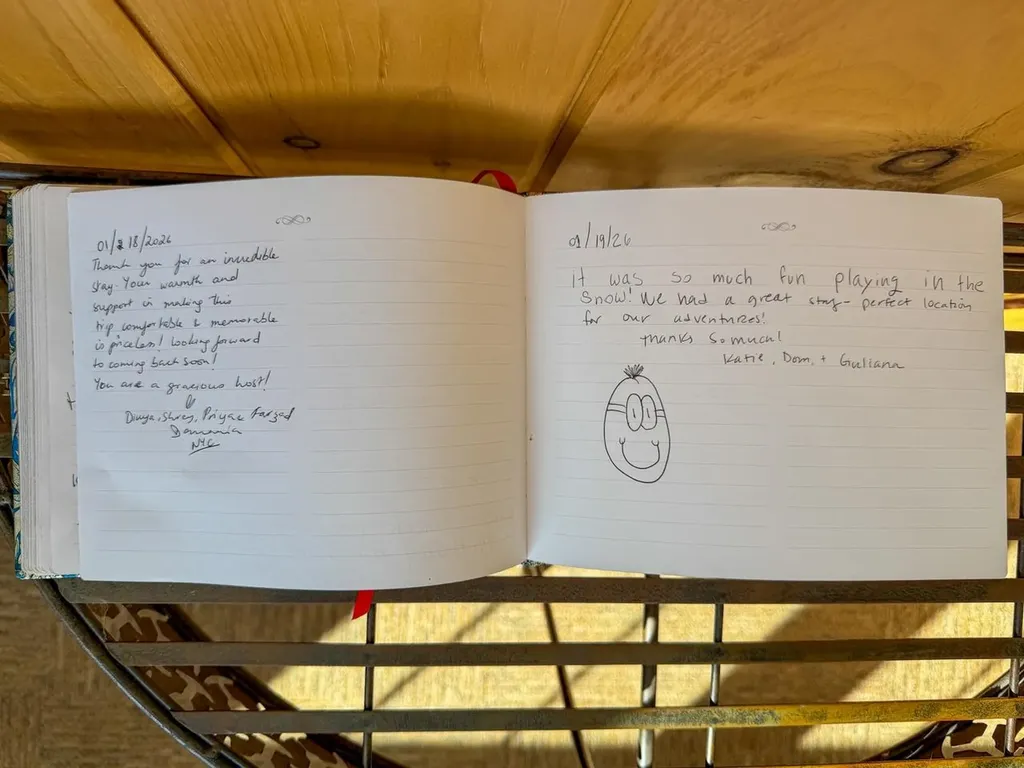 01/18/2026
Thank you for an incredible
stay. Your warmth and
support in making this
trip comfortable & memorable
is priceless! Looking forward
to coming back soon!
You are a gracious host!
Divya, Shrey, Priya & Farzad
Damania
NYC
01/19/26
it was so much fun playing in the
snow! We had a great stay - perfect location
for our adventures!
Thanks so much!
Katie, Dom, + Guliana